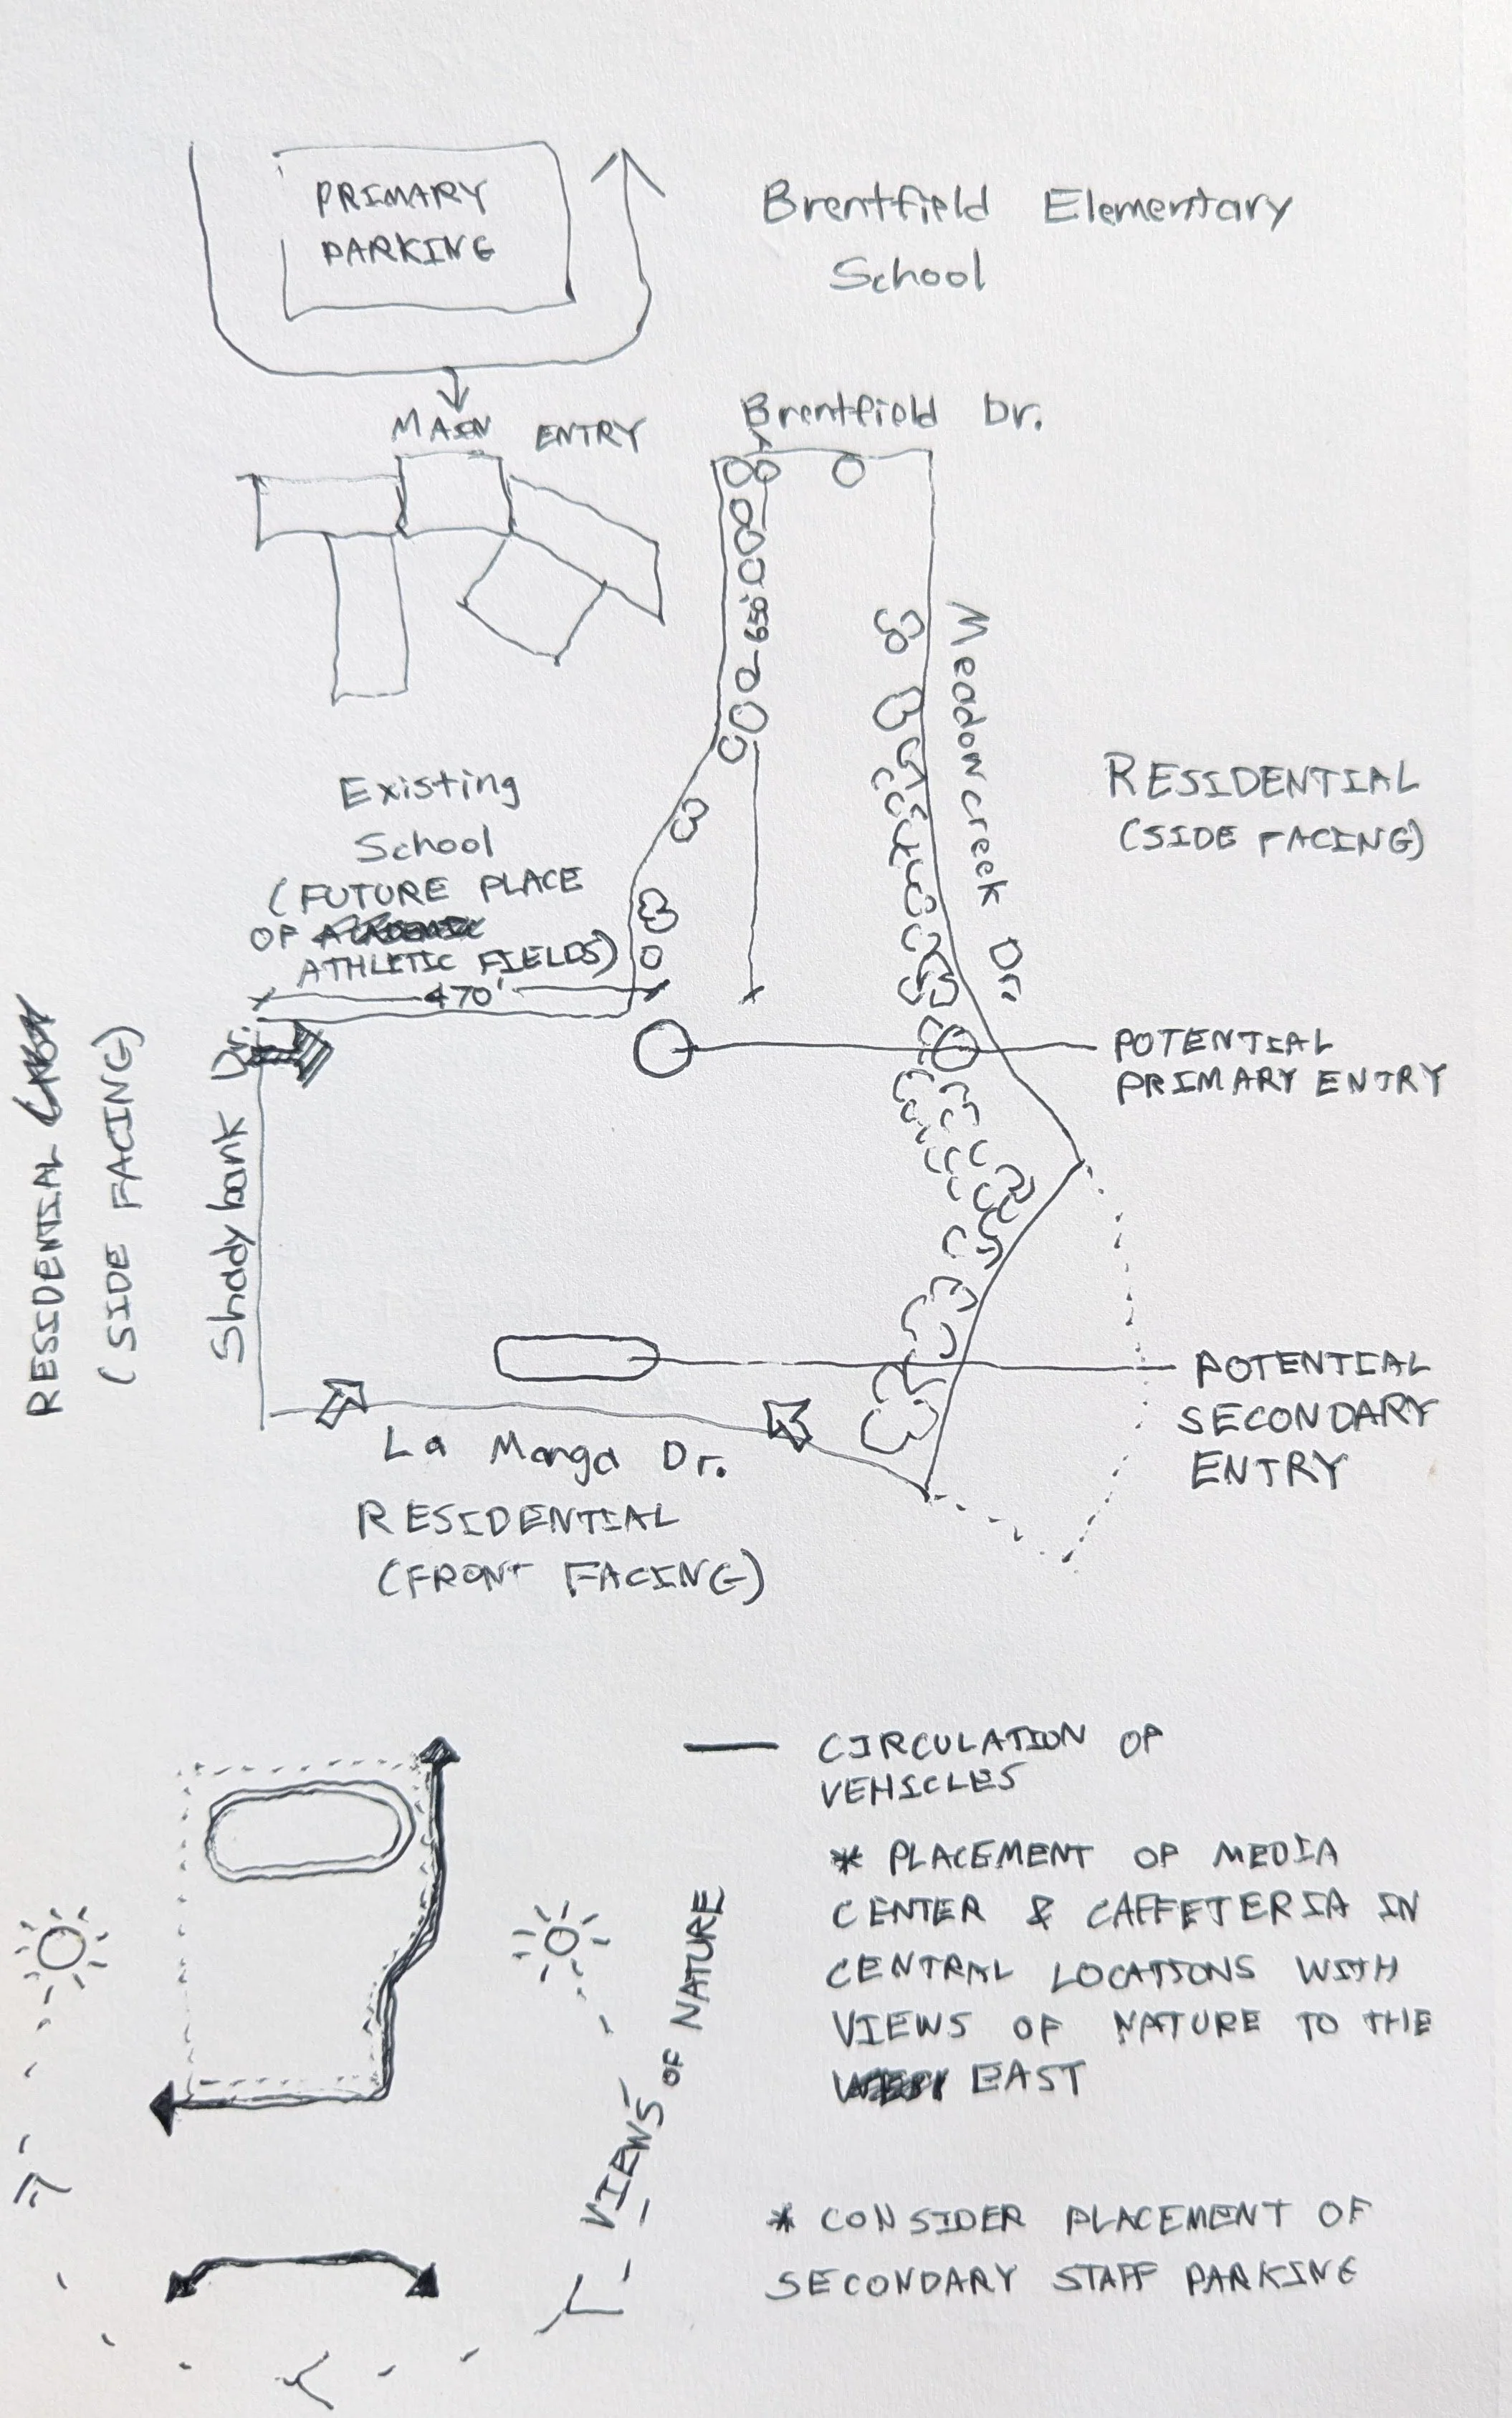 PRIMARY
PARKING
Brentfield Elementary
School
MAIN ENTRY
Brentfield Dr.
650'
Meadowcreek Dr.
Existing
School
(FUTURE PLACE
OF
ATHLETIC FIELDS)
470'
RESIDENTIAL
(SIDE FACING)
RESIDENTIAL
(SIDE FACING)
Shadybank Dr.
POTENTIAL
PRIMARY ENTRY
POTENTIAL
SECONDARY
ENTRY
La Manga Dr.
RESIDENTIAL
(FRONT FACING)
CIRCULATION OF
VEHICLES
* PLACEMENT OF MEDIA
CENTER & CAFFETERIA IN
CENTRAL LOCATIONS WITH
VIEWS OF NATURE TO THE
EAST
VIEWS OF NATURE
* CONSIDER PLACEMENT OF
SECONDARY STAFF PARKING